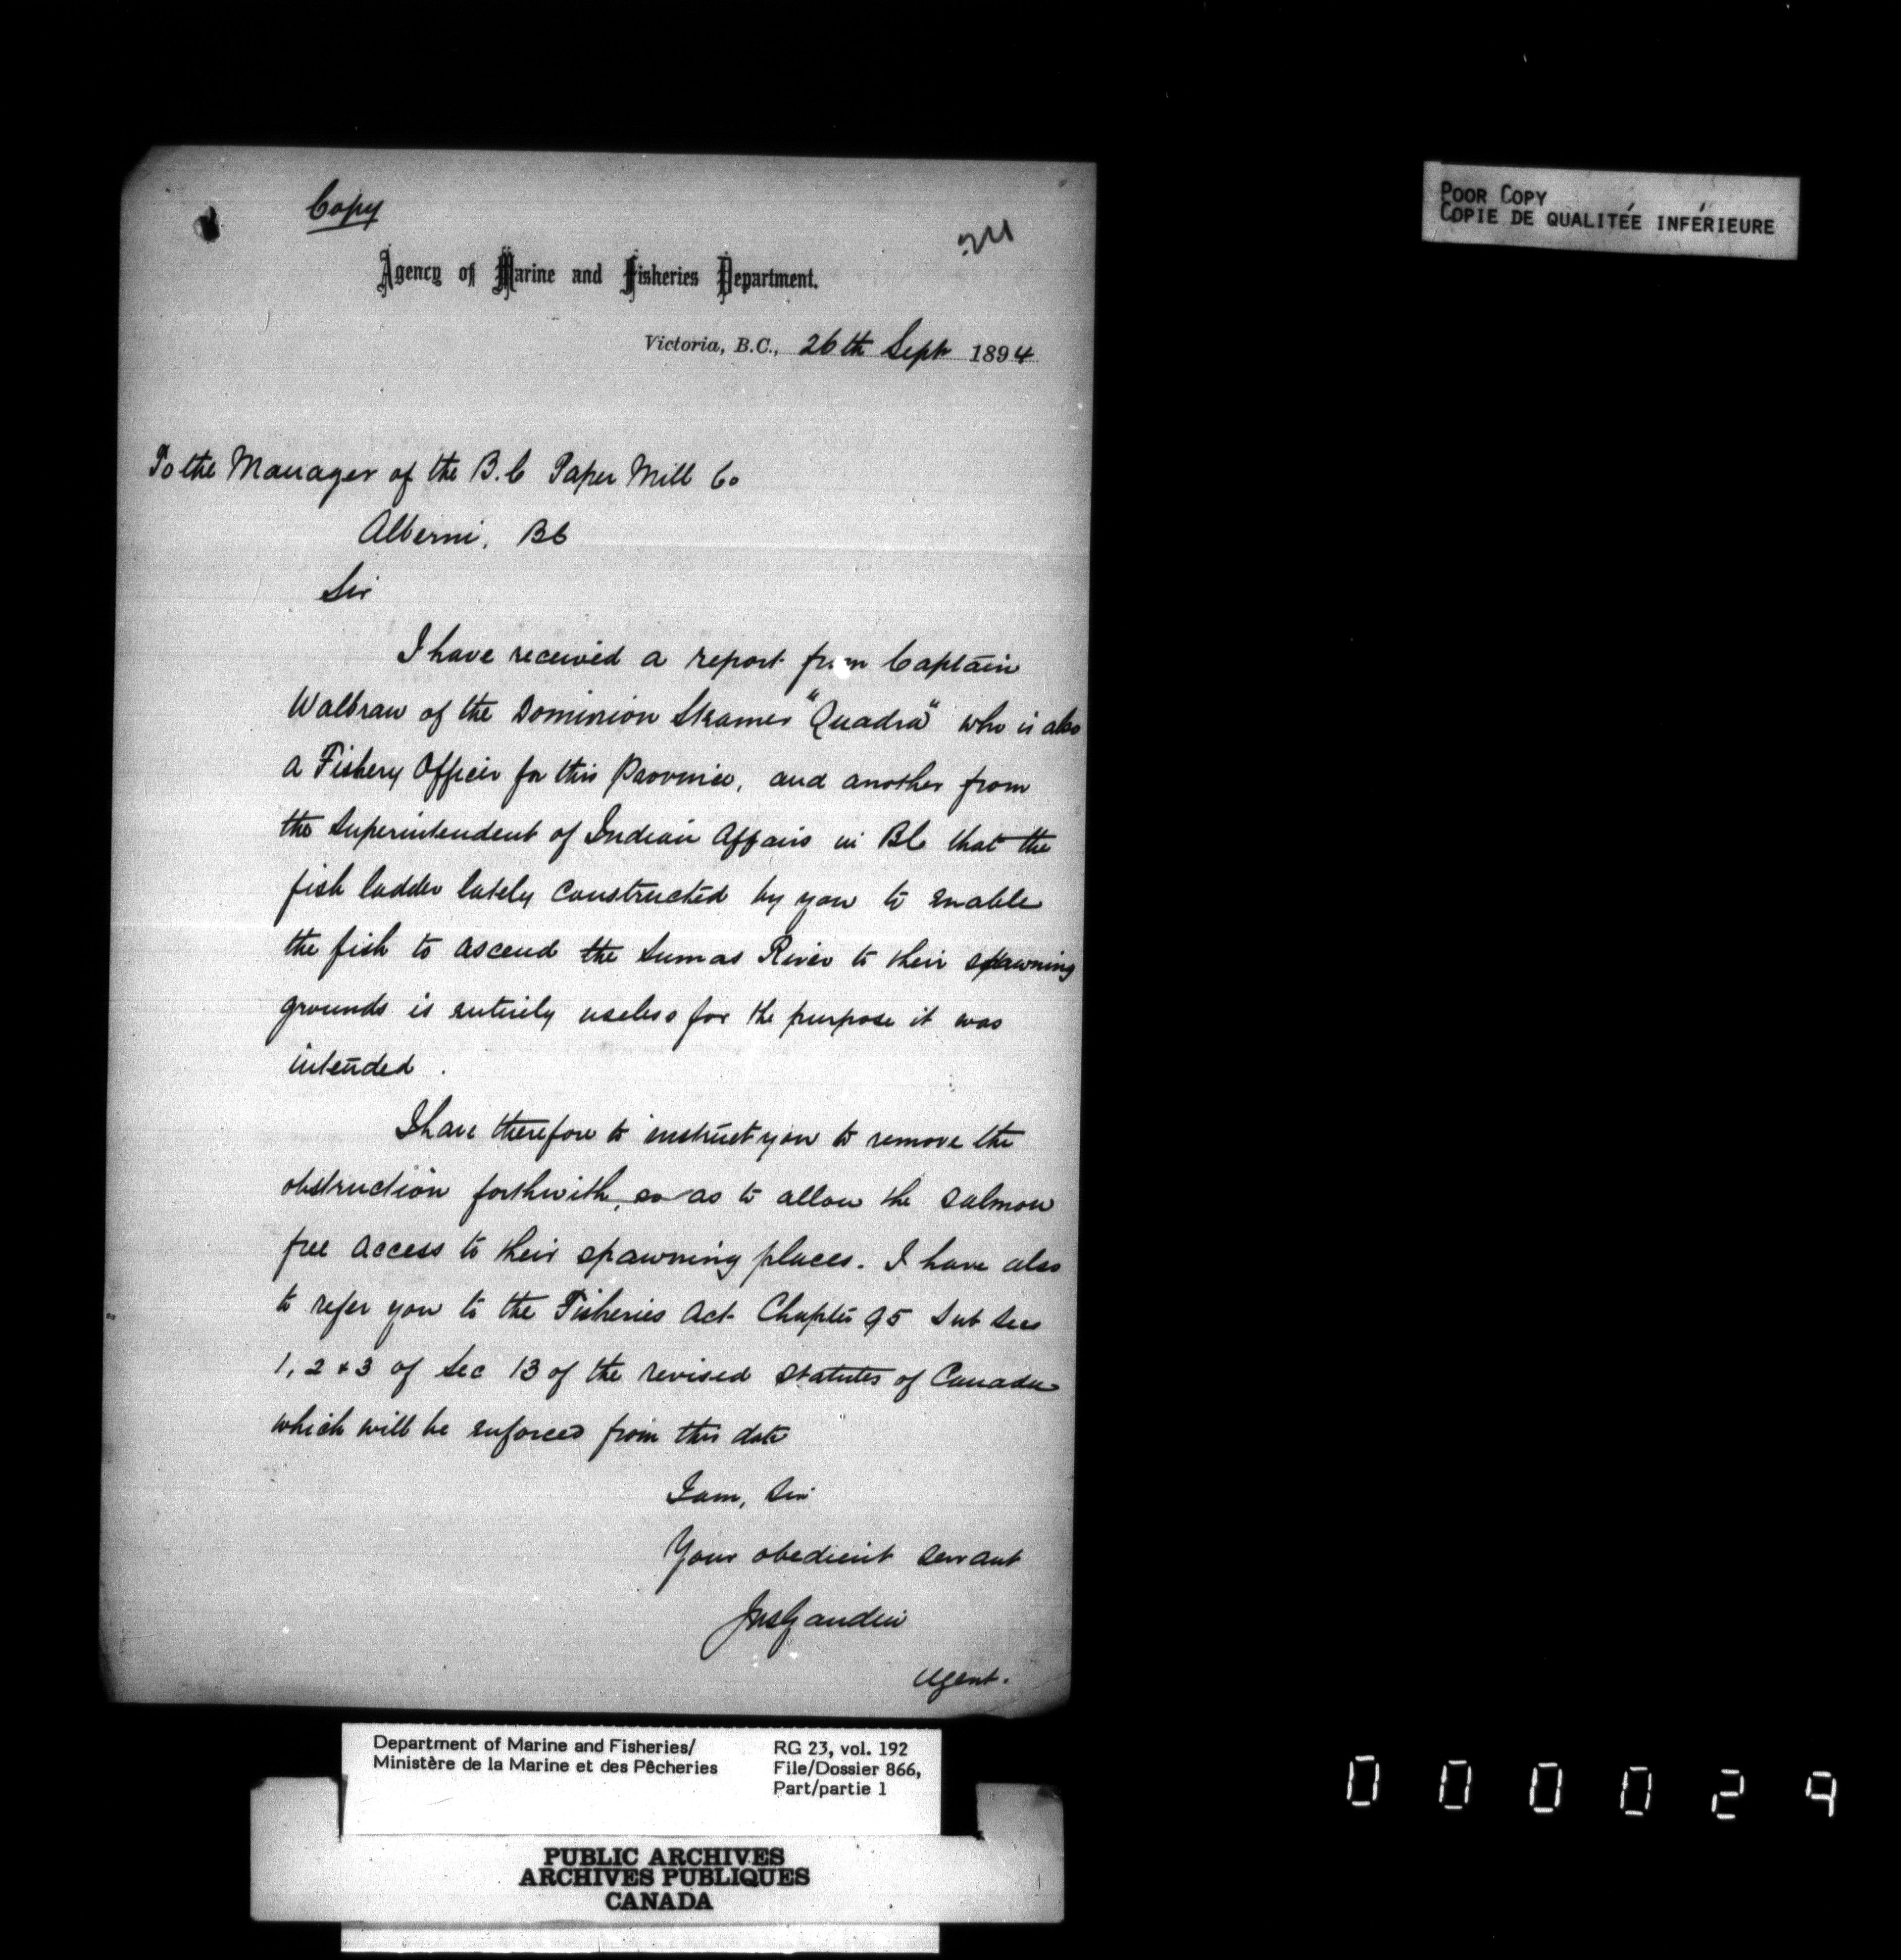 Copy
24
Agency of Marine and Fisheries Department.
Victoria, B.C., 26th Sept 1894
To the Manager of the B.C Paper Mill Co
Alberni, BC
Sir
I have received a report from Captain
Walbran of the Dominion Steamer "Quadra" who is also
a Fishery Officer for this Province, and another from
the Superintendent of Indian Affairs in BC that the
fish ladder lately constructed by you to enable
the fish to ascend the Sumas River to their spawning
grounds is entirely useless for the purpose it was
intended.
I have therefore to instruct you to remove the
obstruction forthwith, so as to allow the salmon
free access to their spawning places. I have also
to refer you to the Fisheries Act Chapter 95 Sub Secs
1, 2 & 3 of Sec 13 of the revised Statutes of Canada
which will be enforced from this date
I am, Sir
Your obedient servant
Jas Gaudin
Agent.
POOR COPY
COPIE DE QUALITÉE INFÉRIEURE
Department of Marine and Fisheries/
Ministère de la Marine et des Pêcheries
RG 23, vol. 192
File/Dossier 866,
Part/partie 1
PUBLIC ARCHIVES
ARCHIVES PUBLIQUES
CANADA
000029